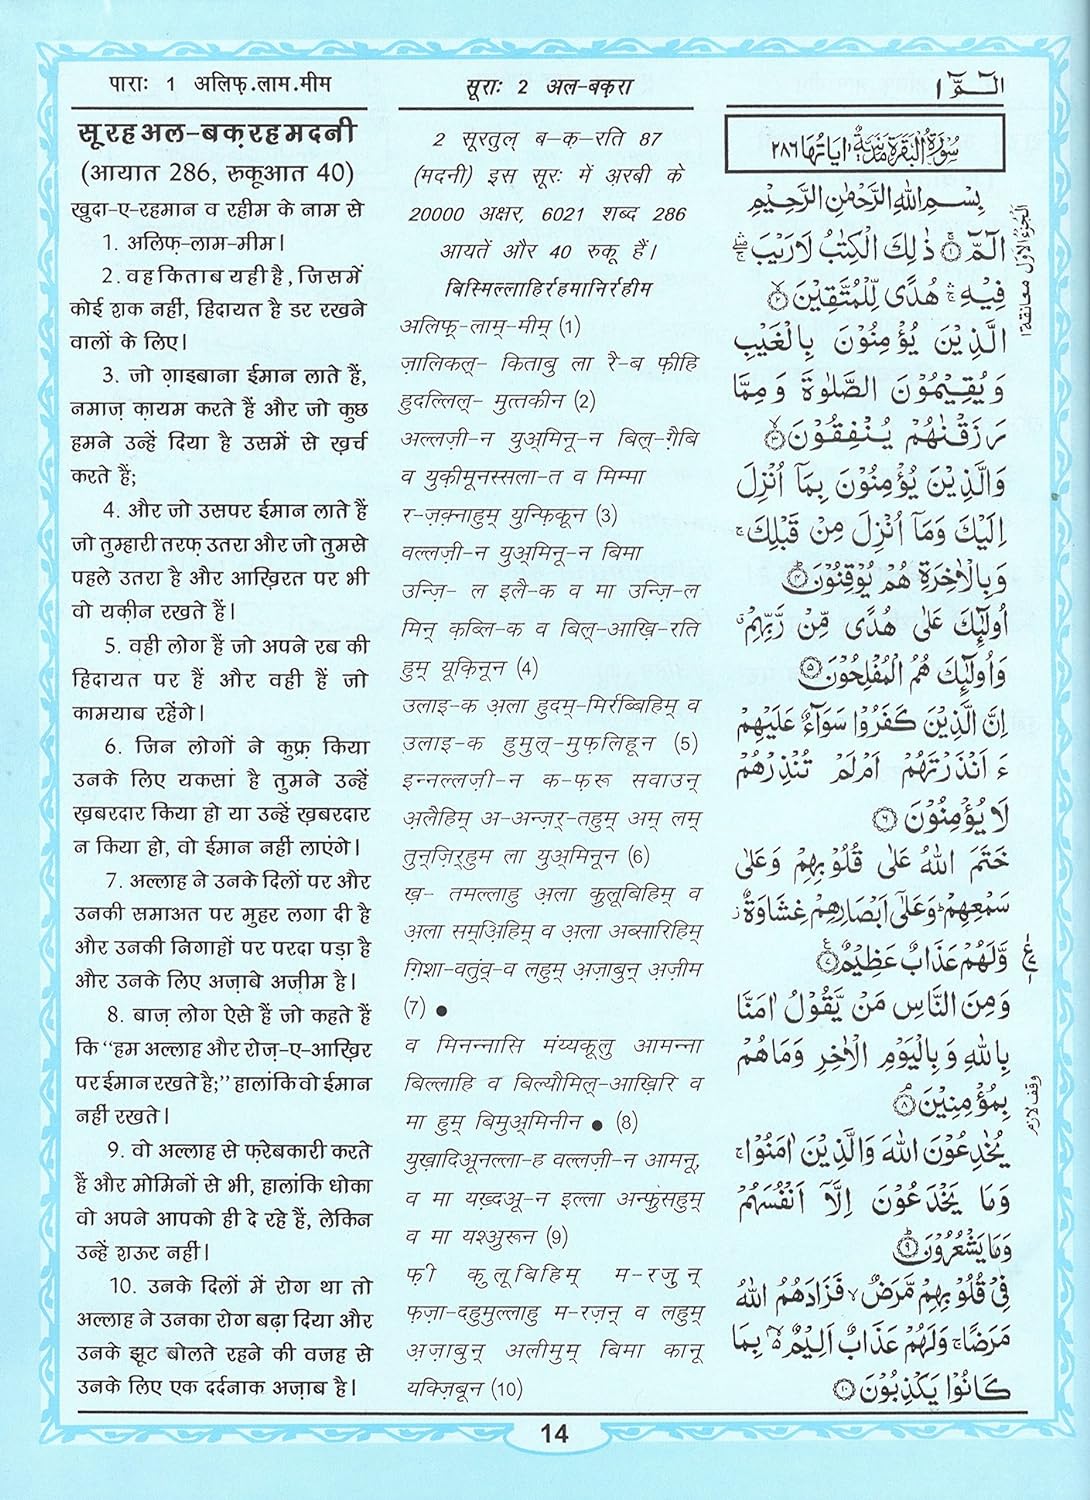 पाराः 1 अलिफ़.लाम.मीम
सूरह अल-बक़रह मदनी
(आयात 286, रुकूआत 40)
खुदा-ए-रहमान व रहीम के नाम से
1. अलिफ़-लाम-मीम।
2. वह किताब यही है, जिसमें
कोई शक नहीं, हिदायत है डर रखने
वालों के लिए।
3. जो ग़ाइबाना ईमान लाते हैं,
नमाज़ क़ायम करते हैं और जो कुछ
हमने उन्हें दिया है उसमें से ख़र्च
करते हैं;
4. और जो उसपर ईमान लाते हैं
जो तुम्हारी तरफ़ उतरा और जो तुमसे
पहले उतरा है और आख़िरत पर भी
वो यक़ीन रखते हैं।
5. वही लोग हैं जो अपने रब की
हिदायत पर हैं और वही हैं जो
कामयाब रहेंगे।
6. जिन लोगों ने कुफ़्र किया
उनके लिए यकसां है तुमने उन्हें
ख़बरदार किया हो या उन्हें ख़बरदार
न किया हो, वो ईमान नहीं लाएंगे।
7. अल्लाह ने उनके दिलों पर और
उनकी समाअत पर मुहर लगा दी है
और उनकी निगाहों पर परदा पड़ा है
और उनके लिए अज़ाबे अज़ीम है।
8. बाज़ लोग ऐसे हैं जो कहते हैं
कि "हम अल्लाह और रोज़-ए-आख़िर
पर ईमान रखते है;" हालांकि वो ईमान
नहीं रखते।
9. वो अल्लाह से फ़रेबकारी करते
हैं और मोमिनों से भी, हालांकि धोका
वो अपने आपको ही दे रहे हैं, लेकिन
उन्हें शऊर नहीं।
10. उनके दिलों में रोग था तो
अल्लाह ने उनका रोग बढ़ा दिया और
उनके झूट बोलते रहने की वजह से
उनके लिए एक दर्दनाक अज़ाब है।
सूराः 2 अल-बक़रा
2 सूरतुल् ब-क़-रति 87
(मदनी) इस सूरः में अ़रबी के
20000 अक्षर, 6021 शब्द 286
आयतें और 40 रुकू हैं।
बिस्मिल्लाहिर्रहमानिर्रहीम
अलिफ़्-लाम्-मीम् (1)
ज़ालिकल्- किताबु ला रै-ब फ़ीहि
हुदल्लिल्- मुत्तकीन (2)
अल्लज़ी-न युअ्मिनू-न बिल्-ग़ैबि
व युक़ीमूनस्सला-त व मिम्मा
र-ज़क़्नाहुम् युन्फ़िकून (3)
वल्लज़ी-न युअ्मिनू-न बिमा
उन्ज़ि- ल इलै-क व मा उन्ज़ि-ल
मिन् क़ब्लि-क व बिल्-आख़ि-रति
हुम् यूक़िनून (4)
उलाइ-क अ़ला हुदम्-मिर्रब्बिहिम् व
उ़लाइ-क हुमुल्-मुफ़लिहून (5)
इन्नल्लज़ी-न क-फ़रू सवाउन्
अ़लैहिम् अ-अन्ज़र्-तहुम् अम् लम्
तुन्ज़िर्हुम ला युअ्मिनून (6)
ख़- तमल्लाहु अ़ला कुलूबिहिम् व
अ़ला सम्अ़िहिम् व अ़ला अब्सारिहिम्
ग़िशा-वतुंव्-व लहुम् अ़ज़ाबुन् अ़ज़ीम
(7) ●
व मिनन्नासि मंय्यकूलु आमन्ना
बिल्लाहि व बिल्यौमिल्-आख़िरि व
मा हुम् बिमुअ्मिनीन ● (8)
युख़ादिअूनल्ला-ह वल्लज़ी-न आमनू,
व मा यख़्दअू-न इल्ला अन्फ़ुसहुम्
व मा यश्अुरून (9)
फ़ी क़ुलूबिहिम् म-रजुन्
फ़ज़ा-दहुमुल्लाहु म-रज़न् व लहुम्
अ़ज़ाबुन् अलीमुम् बिमा कानू
यक्ज़िबून (10)
الٓمّٓ ١
سُوْرَةُ الْبَقَرَةِ مَدَنِيَّةٌ اٰيَاتُهَا ٢٨٦
بِسْمِ اللهِ الرَّحْمٰنِ الرَّحِيْمِ
الٓمّٓ ۝١ ذٰلِكَ الْكِتٰبُ لَا رَيْبَ
فِيْهِ هُدًى لِّلْمُتَّقِيْنَ ۝٢
الَّذِيْنَ يُؤْمِنُوْنَ بِالْغَيْبِ
وَيُقِيْمُوْنَ الصَّلٰوةَ وَمِمَّا
رَزَقْنٰهُمْ يُنْفِقُوْنَ ۝٣
وَالَّذِيْنَ يُؤْمِنُوْنَ بِمَآ اُنْزِلَ
اِلَيْكَ وَمَآ اُنْزِلَ مِنْ قَبْلِكَ ۚ
وَبِالْاٰخِرَةِ هُمْ يُوْقِنُوْنَ ۝٤
اُولٰٓئِكَ عَلٰى هُدًى مِّنْ رَّبِّهِمْ
وَاُولٰٓئِكَ هُمُ الْمُفْلِحُوْنَ ۝٥
اِنَّ الَّذِيْنَ كَفَرُوْا سَوَآءٌ عَلَيْهِمْ
ءَاَنْذَرْتَهُمْ اَمْ لَمْ تُنْذِرْهُمْ
لَا يُؤْمِنُوْنَ ۝٦
خَتَمَ اللهُ عَلٰى قُلُوْبِهِمْ وَعَلٰى
سَمْعِهِمْ ۭ وَعَلٰٓى اَبْصَارِهِمْ غِشَاوَةٌ ز
وَّلَهُمْ عَذَابٌ عَظِيْمٌ ۝٧
وَمِنَ النَّاسِ مَنْ يَّقُوْلُ اٰمَنَّا
بِاللهِ وَبِالْيَوْمِ الْاٰخِرِ وَمَا هُمْ
بِمُؤْمِنِيْنَ ۝٨
يُخٰدِعُوْنَ اللهَ وَالَّذِيْنَ اٰمَنُوْا ۚ
وَمَا يَخْدَعُوْنَ اِلَّآ اَنْفُسَهُمْ
وَمَا يَشْعُرُوْنَ ۝٩
فِيْ قُلُوْبِهِمْ مَّرَضٌ ۙ فَزَادَهُمُ اللهُ
مَرَضًا ۚ وَلَهُمْ عَذَابٌ اَلِيْمٌ ۢ بِمَا
كَانُوْا يَكْذِبُوْنَ ۝١٠
الجزء الاول
معانقة ١
ع
وقف لازم
14